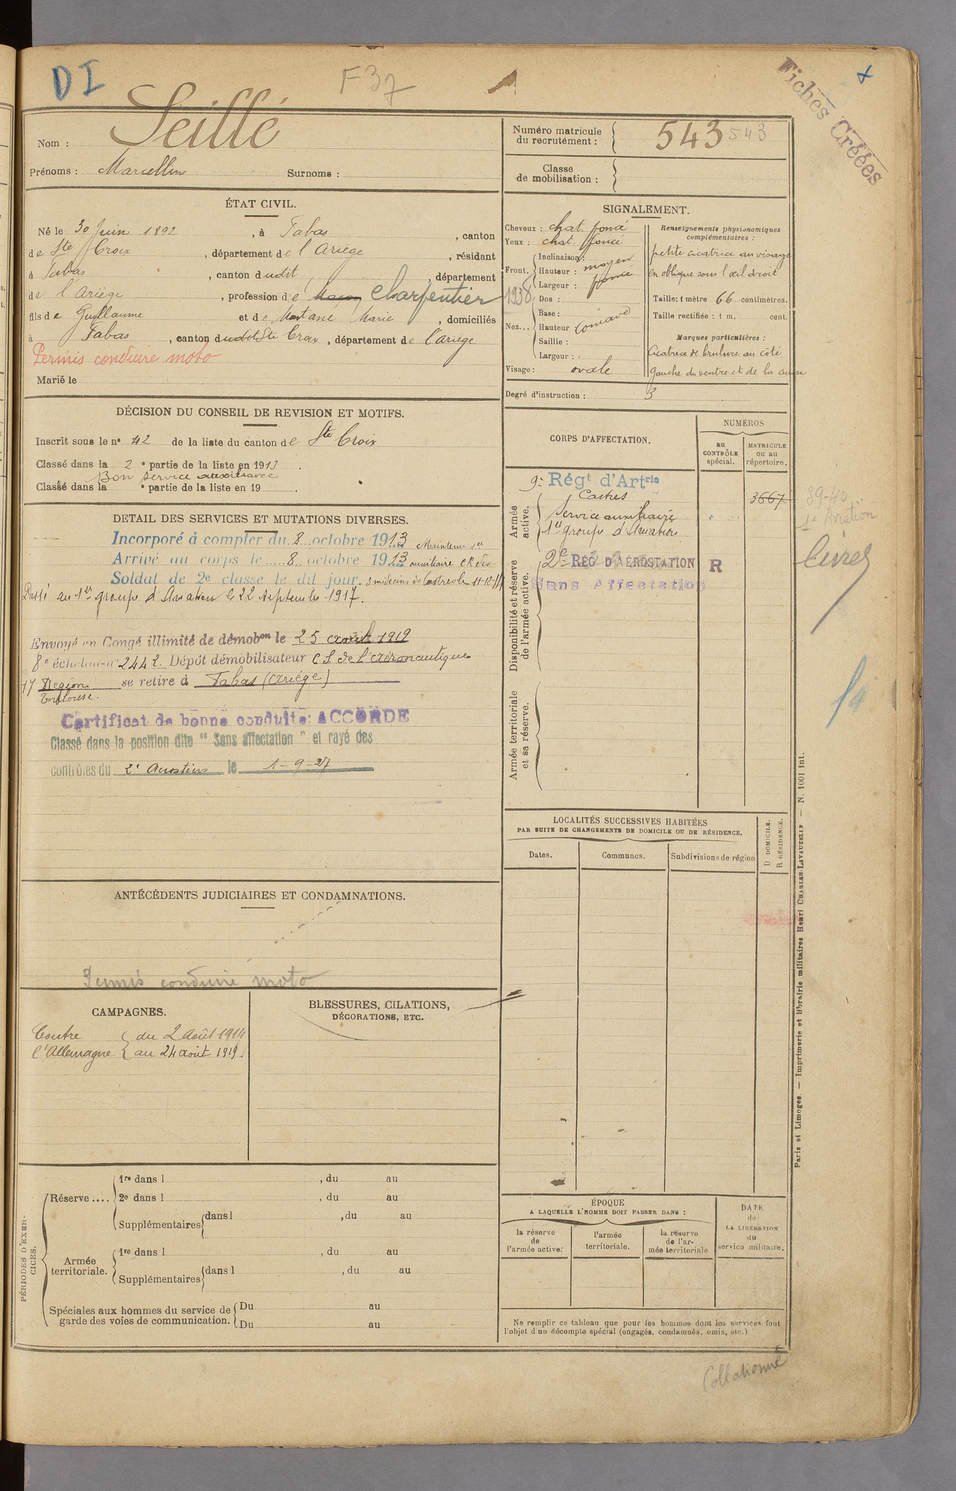 DI
F37
Fiches Créées
Nom : Seillé
Prénoms : Marcellin Surnoms :
Numéro matricule du recrutement : 543 543
Classe de mobilisation :
ÉTAT CIVIL.
Né le 30 Juin 1892, à Fabas, canton
de Ste Croix, département de l'Ariège, résidant
à Fabas, canton dudit, département
de l'Ariège, profession de charpentier
fils de Guillaume et de Marie, domiciliés
à Fabas, canton dudit Ste Croix, département de l'ariège
Permis conduire moto
Marié le
SIGNALEMENT.
Cheveux : chat. foncé
Yeux : chat. foncé
Front. Inclinaison :
Hauteur : moyen
Largeur :
1938
Nez... Dos :
Base :
Hauteur
Saillie :
Largeur :
Visage : ovale
Renseignements physionomiques complémentaires :
petite cicatrice au visage
en oblique sous l'œil droit
Taille : 1 mètre 66 centimètres.
Taille rectifiée : 1 m. cent.
Marques particulières :
Cicatrice de brulure au côté
gauche du ventre et de la
Degré d'instruction : 3
DÉCISION DU CONSEIL DE REVISION ET MOTIFS.
Inscrit sous le n° 42 de la liste du canton de Ste Croix
Classé dans la 2e partie de la liste en 1913.
Bon service auxiliaire
Classé dans la e partie de la liste en 19
DÉTAIL DES SERVICES ET MUTATIONS DIVERSES.
Incorporé à compter du 8 octobre 1913
Arrivé au corps le 8 octobre 1913
Soldat de 2e classe le dit jour.
Passé au 1er groupe d'Aviation le 22 septembre 1917.
Envoyé en Congé illimité de démobon le 25 août 1919
8e échelon n° 2442 Dépôt démobilisateur C.S. de l'aéronautique
17 Région Toulouse. se retire à Fabas (Ariège)
Certificat de bonne conduite: ACCORDÉ
Classé dans la position dite "Sans affectation" et rayé des
contrôles du 2e Aérostiers le 1-9-27
CORPS D'AFFECTATION.
NUMÉROS
au CONTRÔLE spécial.
MATRICULE ou au répertoire.
Armée active.
9e Régt d'Artrie
Castres
Service auxiliaire
1er groupe d'Aviation
3667
39-40
1e Aviation
Livret
Disponibilité et réserve de l'armée active.
2e RÉG. D'AÉROSTATION R
Sans Affectation
Armée territoriale et sa réserve.
LOCALITÉS SUCCESSIVES HABITÉES
PAR SUITE DE CHANGEMENTS DE DOMICILE OU DE RÉSIDENCE.
Dates.
Communes.
Subdivisions de région
D DOMICILE.
R RÉSIDENCE.
ANTÉCÉDENTS JUDICIAIRES ET CONDAMNATIONS.
Permis conduire moto
CAMPAGNES.
Contre l'Allemagne du 2 Août 1914
au 24 août 1919.
BLESSURES, CITATIONS, DÉCORATIONS, ETC.
PÉRIODES D'EXERCICES.
Réserve.... 1re dans l , du au
2e dans l , du au
Supplémentaires dans l , du au
Armée territoriale. 1re dans l , du au
Supplémentaires dans l , du au
Spéciales aux hommes du service de garde des voies de communication. Du au
Du au
ÉPOQUE
A LAQUELLE L'HOMME DOIT PASSER DANS :
la réserve de l'armée active.
l'armée territoriale.
la réserve de l'armée territoriale
DATE de LA LIBÉRATION du service militaire.
Ne remplir ce tableau que pour les hommes dont les services font
l'objet d'un décompte spécial (engagés, condamnés, omis, etc.)
Paris et Limoges. — Imprimerie et librairie militaires Henri CHARLES-LAVAUZELLE — N. 1001 int.
Collationné